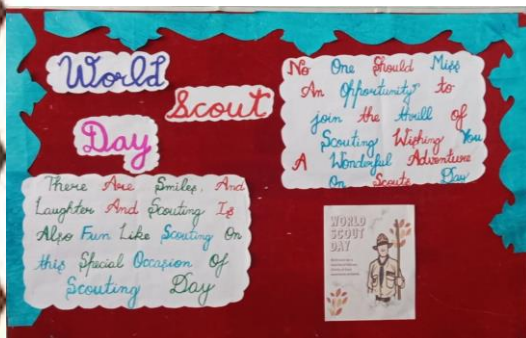 World
Scout
Day
No One Should Miss
An Opportunity to
join the thrill of
Scouting Wishing You
A Wonderful Adventure
On Scouts Day
There Are Smiles, And
Laughter And Scouting Is
Also Fun Like Scouting On
this Special Occasion Of
Scouting Day
WORLD
SCOUT
DAY